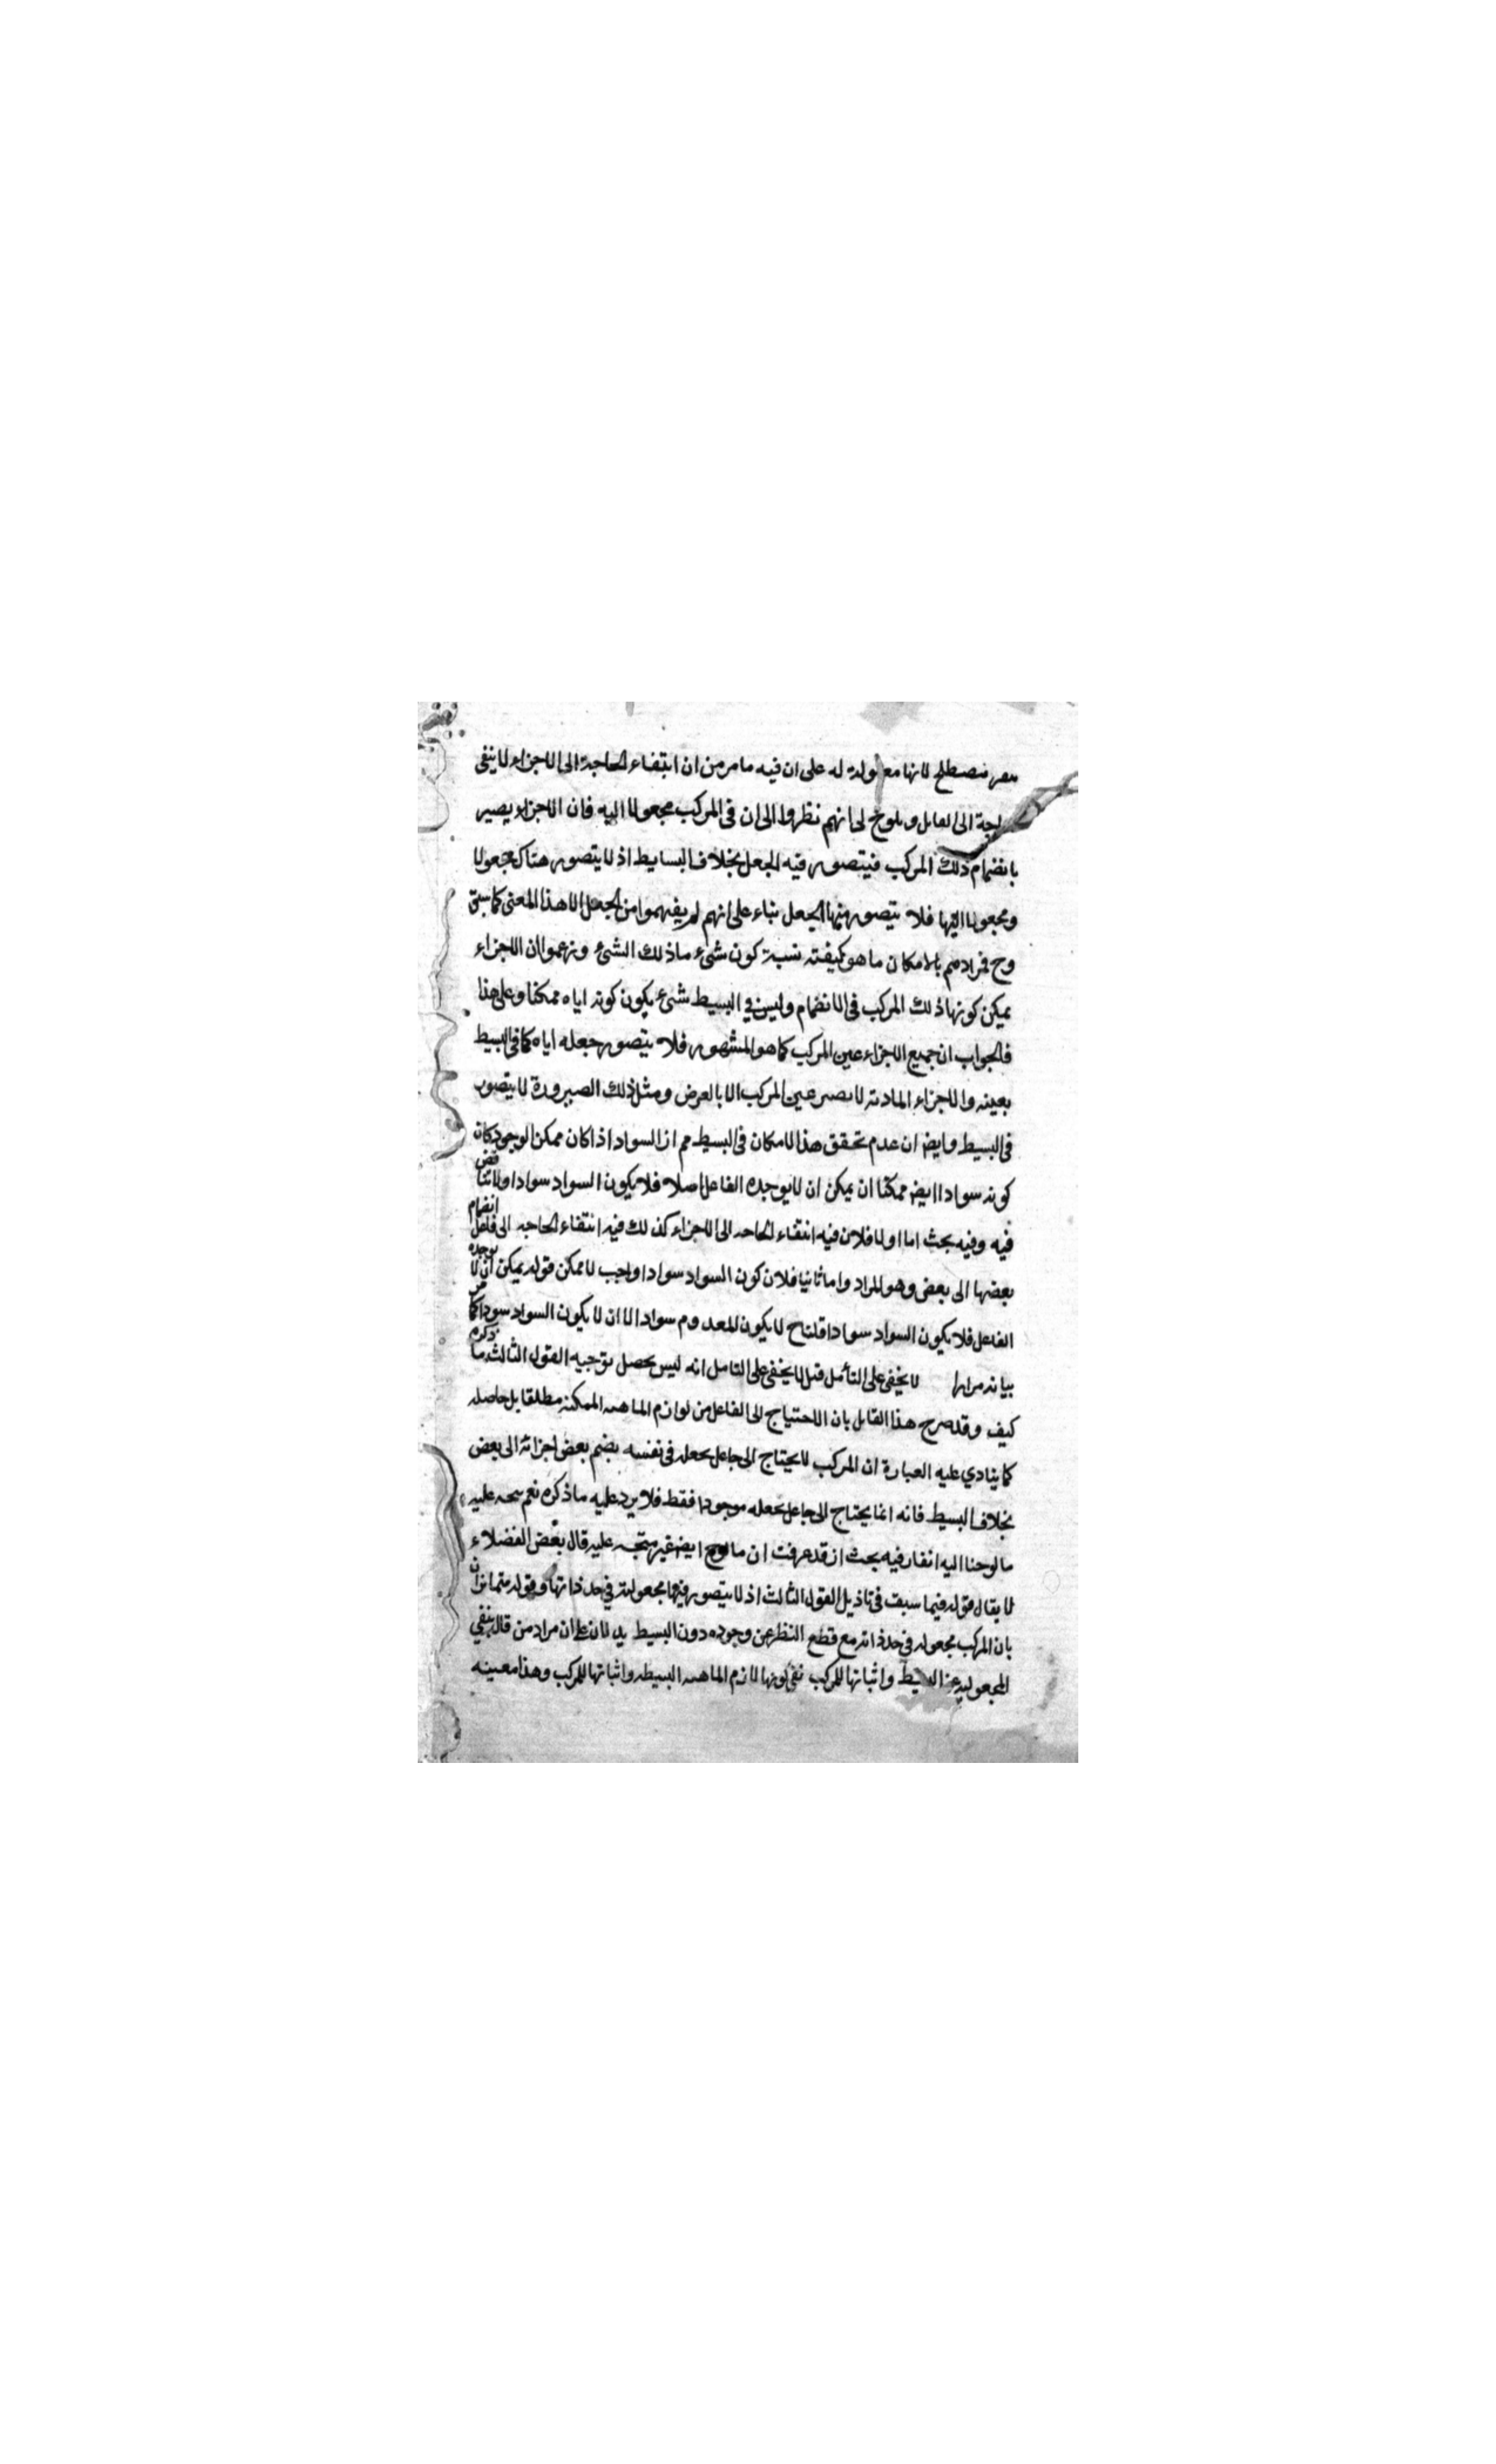 مصطلح لانها معلولة له على ان فيه ما مر من ان انتفاء الحاجة الى الاجزاء لا ينفى
الى الفاعل ويلوح لى انهم نظروا الى ان فى المركب مجعولا اليه فان الاجزاء يصير
بانضمام ذلك المركب فيتصور فيه الجعل بخلاف البسايط اذ لا يتصور هناك مجعولا
ومجعولا اليها فلا يتصور فيها الجعل بناء على انهم لم يفهموا من الجعل الا هذا المعنى كما سبق
وح فمرادهم بالامكان ما هو كيفية نسبة كون شىء ما ذلك الشىء وزعموا ان الاجزاء
يمكن كونها ذلك المركب فى الانضمام وليس في البسيط شىء يكون كونه اياه ممكنا وعلى هذا
فالجواب ان جميع الاجزاء عين المركب كما هو المشهور فلا يتصور جعله اياه كما فى البسيط
بعينه والاجزاء المادية لا تصير عين المركب الا بالعرض ومثل ذلك الصيرورة لا يتصور
فى البسيط وايض ان عدم تحقق هذا الامكان فى البسيط مم اذ السواد اذا كان ممكن الوجود كان
كونه سوادا ايض ممكنا ان يمكن ان لا يوجده الفاعل اصلا فلا يكون السواد سوادا ولا تناقض
فيه وفيه بحث اما اولا فلان فيه انتفاء الحاجه الى الاجزاء كذلك فيه انتفاء الحاجه الى فاعل انضمام
بعضها الى بعض وهو المراد واما ثانيا فلان كون السواد سوادا واجب لا ممكن قوله يمكن ان لا يوجده
الفاعل فلا يكون السواد سوادا قلنا ح لا يكون المعدوم سوادا الا ان لا يكون السواد سوادا كما مر
بيانه مرارا لا يخفى على المتأمل قيل لا يخفى على المتامل انه ليس يحصل توجيه القول الثالث ما ذكره
كيف وقد صرح هذا القايل بان الاحتياج الى الفاعل من لوازم الماهيه الممكنه مطلقا بل حاصله
كما ينادي عليه العبارة ان المركب لا يحتاج الى جاعل يجعله فى نفسه بضم بعض اجزائه الى بعض
بخلاف البسيط فانه انما يحتاج الى جاعل يجعله موجودا فقط فلا يرد عليه ما ذكره نعم يتجه عليه
ما لوحنا اليه انفا وفيه بحث اذ قد عرفت ان ما لوح ايض غير متجه عليه قال بعض الفضلاء
لا يقال قوله فيما سبق فى تاذيل القول الثالث اذ لا يتصور فيها مجعولية في حد ذاتها وقوله
بان المركب مجعول فى حد ذاته مع قطع النظر عن وجوده دون البسيط يدلان على ان مراد من قال بنفي
المجعولية عن البسيط واثباتها للمركب نفى كونها لازم الماهيه البسيطه واثباتها للمركب وهذا معينه